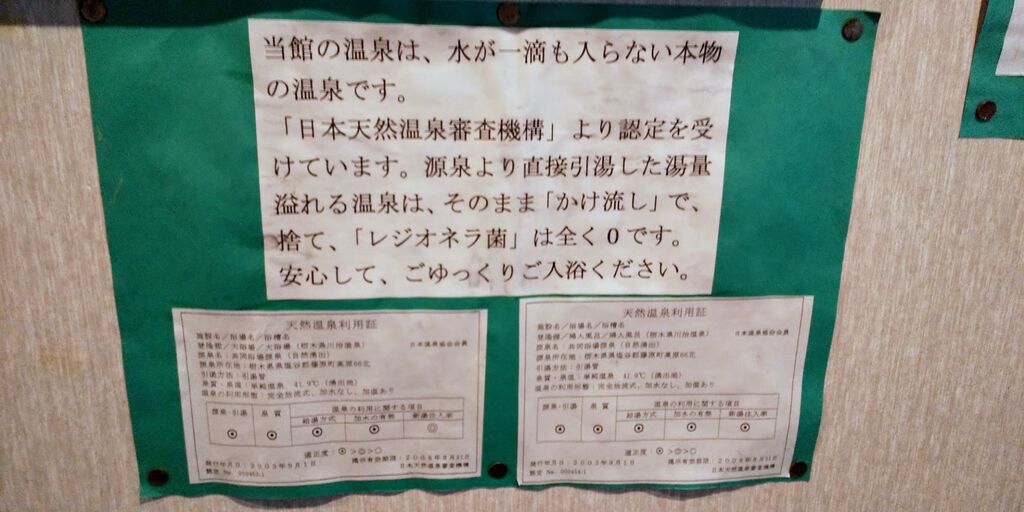 当館の温泉は、水が一滴も入らない本物
の温泉です。
「日本天然温泉審査機構」より認定を受
けています。源泉より直接引湯した湯量
溢れる温泉は、そのまま「かけ流し」で、
捨て、「レジオネラ菌」は全く0です。
安心して、ごゆっくりご入浴ください。
天然温泉利用証
施設名/浴場名/浴槽名
登隆館/大浴場/大浴槽(栃木県川治温泉)
日本温泉協会会員
源泉名:共同浴場源泉(自然湧出)
源泉所在地:栃木県塩谷郡藤原町高原66北
引湯方法:引湯管
泉質・泉温:単純温泉 41.9℃(湧出地)
温泉の利用形態:完全放流式、加水なし、加温あり
源泉・引湯 泉質 温泉の利用に関する項目
給湯方式 加水の有無 新湯注入率
適正度:◉>◎>○
発行年月日:2003年9月1日
掲示有効期限:2006年8月31日
認定 No.
日本天然温泉審査機構
天然温泉利用証
施設名/浴場名/浴槽名
登隆館/婦人風呂/婦人風呂(栃木県川治温泉)
日本温泉協会会員
源泉名:共同浴場源泉(自然湧出)
源泉所在地:栃木県塩谷郡藤原町高原66北
引湯方法:引湯管
泉質・泉温:単純温泉 41.9℃(湧出地)
温泉の利用形態:完全放流式、加水なし、加温あり
源泉・引湯 泉質 温泉の利用に関する項目
給湯方式 加水の有無 新湯注入率
適正度:◉>◎>○
発行年月日:2003年9月1日
掲示有効期限:2006年8月31日
認定 No.
日本天然温泉審査機構